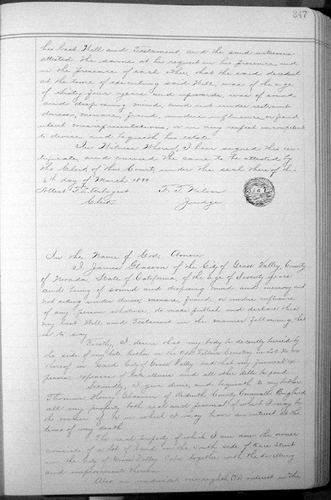 347
his last Will and Testament, and the said witnesses
attested the same at his request in his presence and
in the presence of each other, that the said deceased
at the time of executing said Will, was of the age
of sixty four years and upwards, was of sound
and disposing mind, and not under restraint
duress, menace, fraud, undue influence, or fraud
ulent misrepresentations, or in any respect incompetent
to devise and bequeath his estate.
In Witness Whereof, I have signed this cer
tificate, and caused the same to be attested by
the Clerk of this Court, under the seal thereof the
day of March
Attest
Clerk
F. T. Nilon
Judge
In the Name of God. Amen
I, James Gluson of the City of Grass Valley, County
of Nevada, State of California, of the age of Seventy years
and being of sound and disposing mind and memory and
not acting under duress, menace, fraud, or undue influence
of any person whatever, do make, publish and declare this
my last Will and Testament in the manner following, that
is to say.
Firstly, I desire that my body be decently buried by
the side of my late brother in the Odd Fellows Cemetery in
thereof in said City of Grass Valley
Secondly, I give, devise, and bequeath to my brother
Thomas Henry of Redruth, County Cornwall, England
all my property both real and personal of which I may be
the owner, or in which I may have an interest at the
time of my death.
The real property of which I am now the owner
consists of a lot of land on the north side of Race Street
in the City of Grass Valley together with the dwelling
and improvements thereon.
Also an undivided one eighth interest in the